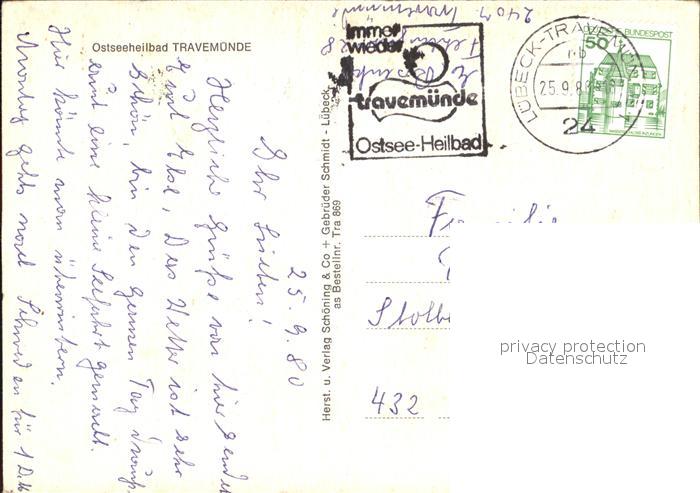 Ostseeheilbad TRAVEMÜNDE
25.9.80
Ihr Lieben!
Herzliche Grüße von hier sendet
Euch Else, Das Wetter ist sehr
schön, bin den ganzen Tag drauß.
erst eine kleine Seefahrt gemacht.
Hier könnte man überwintern.
Montag gehts nach Schweden für 1 D.M
Herst. u. Verlag Schöning & Co + Gebrüder Schmidt - Lübeck
as Bestellnr. Tra 869
immer
wieder
travemünde
Ostsee-Heilbad
LÜBECK-TRAVEMÜ
25.9.8
24
50
BUNDESPOST
2407 Travemünde
Familie
Stolbe
432
privacy protection
Datenschutz